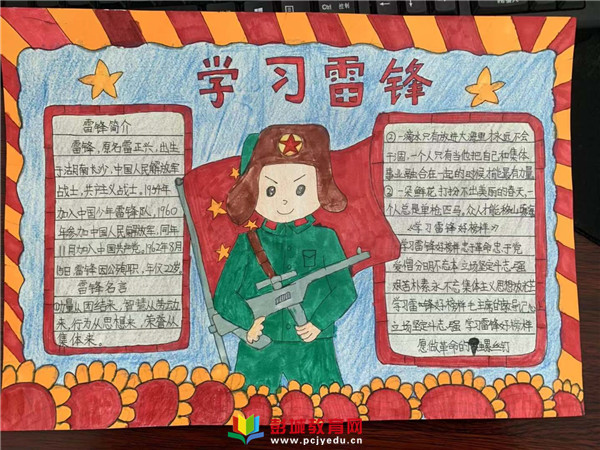 学习雷锋
雷锋简介
雷锋，原名雷正兴，出生
于湖南长沙，中国人民解放军
战士，共产主义战士。1954年
加入中国少年先锋队，1960
年参加中国人民解放军，同年
11月加入中国共产党。1962年8月
15日雷锋因公殉职，年仅22岁
雷锋名言
力量从团结来，智慧从劳动
来，行为从思想来，荣誉从
集体来。
①一滴水只有放进大海里才永远不会
干涸，一个人只有当他把自己和集体
事业融合在一起的时候才能最有力量
②一朵鲜花打扮不出美丽的春天，一
个人总是单枪匹马，众人才能移山填海
《学习雷锋好榜样》
学习雷锋好榜样忠于革命忠于党
爱憎分明不忘本立场坚定斗志强
艰苦朴素永不忘
集体主义思想放光芒
学习雷锋好榜样毛主席的教导记心上
立场坚定斗志强 学习雷锋好榜样
愿做革命的螺丝钉
彭城教育网
www.pcjyedu.cn